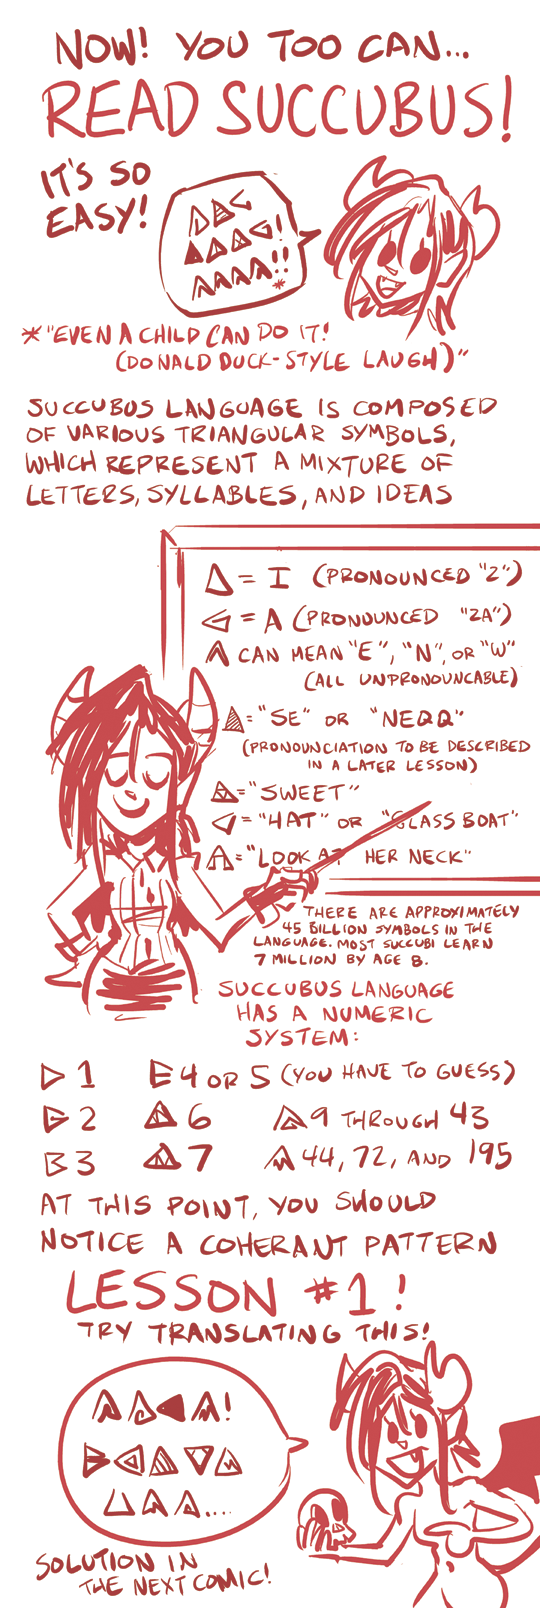 NOW! YOU TOO CAN...
READ SUCCUBUS!
IT'S SO
EASY!
*"EVEN A CHILD CAN DO IT!
(DONALD DUCK-STYLE LAUGH)"
SUCCUBUS LANGUAGE IS COMPOSED
OF VARIOUS TRIANGULAR SYMBOLS,
WHICH REPRESENT A MIXTURE OF
LETTERS, SYLLABLES, AND IDEAS
= I (PRONOUNCED "2")
= A (PRONOUNCED "2A")
CAN MEAN "E", "N", OR "W"
(ALL UNPRONOUNCABLE)
= "SE" OR "NEQQ"
(PRONOUNCIATION TO BE DESCRIBED
IN A LATER LESSON)
= "SWEET"
= "HAT" OR "GLASS BOAT"
= "LOOK AT HER NECK"
THERE ARE APPROXIMATELY
45 BILLION SYMBOLS IN THE
LANGUAGE. MOST SUCCUBI LEARN
7 MILLION BY AGE 8.
SUCCUBUS LANGUAGE
HAS A NUMERIC
SYSTEM:
1 4 OR 5 (YOU HAVE TO GUESS)
2 6 9 THROUGH 43
3 7 44, 72, AND 195
AT THIS POINT, YOU SHOULD
NOTICE A COHERANT PATTERN
LESSON #1!
TRY TRANSLATING THIS!
SOLUTION IN
THE NEXT COMIC!